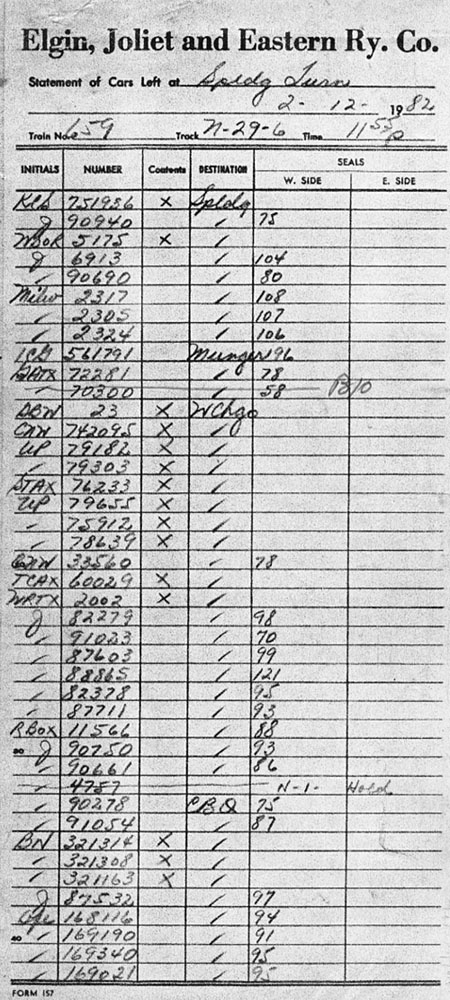 Elgin, Joliet and Eastern Ry. Co.
Statement of Cars Left at Spldg Turn
2-12-1982
Train No. 159 Track N-29-6 Time 11 55 p
SEALS
INITIALS NUMBER Contents DESTINATION W. SIDE E. SIDE
751956 X Spldg
J 90940 ✓ 75
WSOR 5175 X ✓
J 6913 ✓ 104
✓ 90690 ✓ 80
Milw 2317 ✓ 108
✓ 2305 ✓ 107
✓ 2324 ✓ 106
ICG 561791 Munger 196
GATX 72281 ✓ 78
✓ 70300 ✓ 58 B/O
DBW 23 X WChgo
CNW 742095 X ✓
UP 79182 X ✓
✓ 79303 X ✓
STAX 76233 X ✓
UP 79655 X ✓
✓ 75912 X ✓
✓ 78639 X ✓
CNW 33560 ✓ 78
TCAX 60029 X ✓
WRTX 2002 X ✓
J 82279 ✓ 98
✓ 91023 ✓ 70
✓ 87603 ✓ 99
✓ 88865 ✓ 121
✓ 82378 ✓ 95
✓ 87711 ✓ 93
RBox 11566 ✓ 88
20 J 90750 ✓ 93
✓ 90661 ✓ 86
✓ 4757 N-1- Hold
✓ 90278 CBQ 75
✓ 91054 ✓ 87
BN 321314 X ✓
✓ 321308 X ✓
✓ 321163 X ✓
J 87532 ✓ 97
168116 ✓ 94
40 ✓ 169190 ✓ 91
✓ 169340 ✓ 95
✓ 169021 ✓ 95
FORM 157